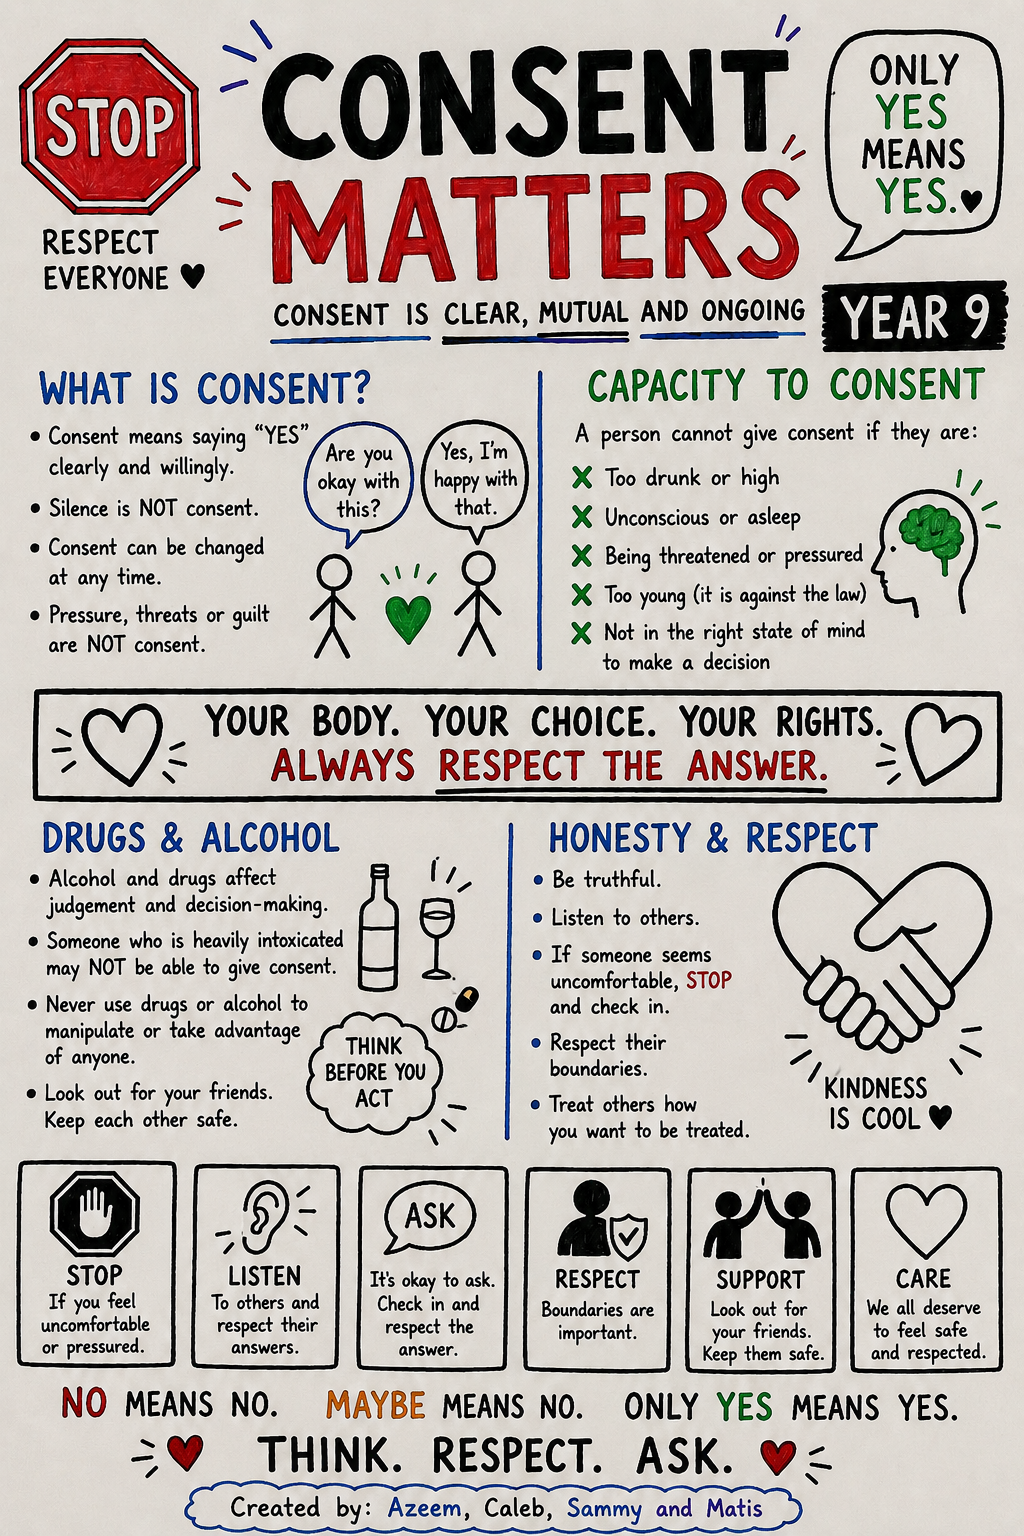 STOP
RESPECT
EVERYONE
CONSENT
MATTERS
CONSENT IS CLEAR, MUTUAL AND ONGOING
ONLY
YES
MEANS
YES.
YEAR 9
WHAT IS CONSENT?
• Consent means saying “YES”
clearly and willingly.
• Silence is NOT consent.
• Consent can be changed
at any time.
• Pressure, threats or guilt
are NOT consent.
Are you
okay with
this?
Yes, I'm
happy with
that.
CAPACITY TO CONSENT
A person cannot give consent if they are:
Too drunk or high
Unconscious or asleep
Being threatened or pressured
Too young (it is against the law)
Not in the right state of mind
to make a decision
YOUR BODY. YOUR CHOICE. YOUR RIGHTS.
ALWAYS RESPECT THE ANSWER.
DRUGS & ALCOHOL
• Alcohol and drugs affect
judgement and decision-making.
• Someone who is heavily intoxicated
may NOT be able to give consent.
• Never use drugs or alcohol to
manipulate or take advantage
of anyone.
• Look out for your friends.
Keep each other safe.
THINK
BEFORE YOU
ACT
HONESTY & RESPECT
• Be truthful.
• Listen to others.
• If someone seems
uncomfortable, STOP
and check in.
• Respect their
boundaries.
• Treat others how
you want to be treated.
KINDNESS
IS COOL
STOP
If you feel
uncomfortable
or pressured.
LISTEN
To others and
respect their
answers.
ASK
It's okay to ask.
Check in and
respect the
answer.
RESPECT
Boundaries are
important.
SUPPORT
Look out for
your friends.
Keep them safe.
CARE
We all deserve
to feel safe
and respected.
NO MEANS NO. MAYBE MEANS NO. ONLY YES MEANS YES.
THINK. RESPECT. ASK.
Created by: Azeem, Caleb, Sammy and Matis